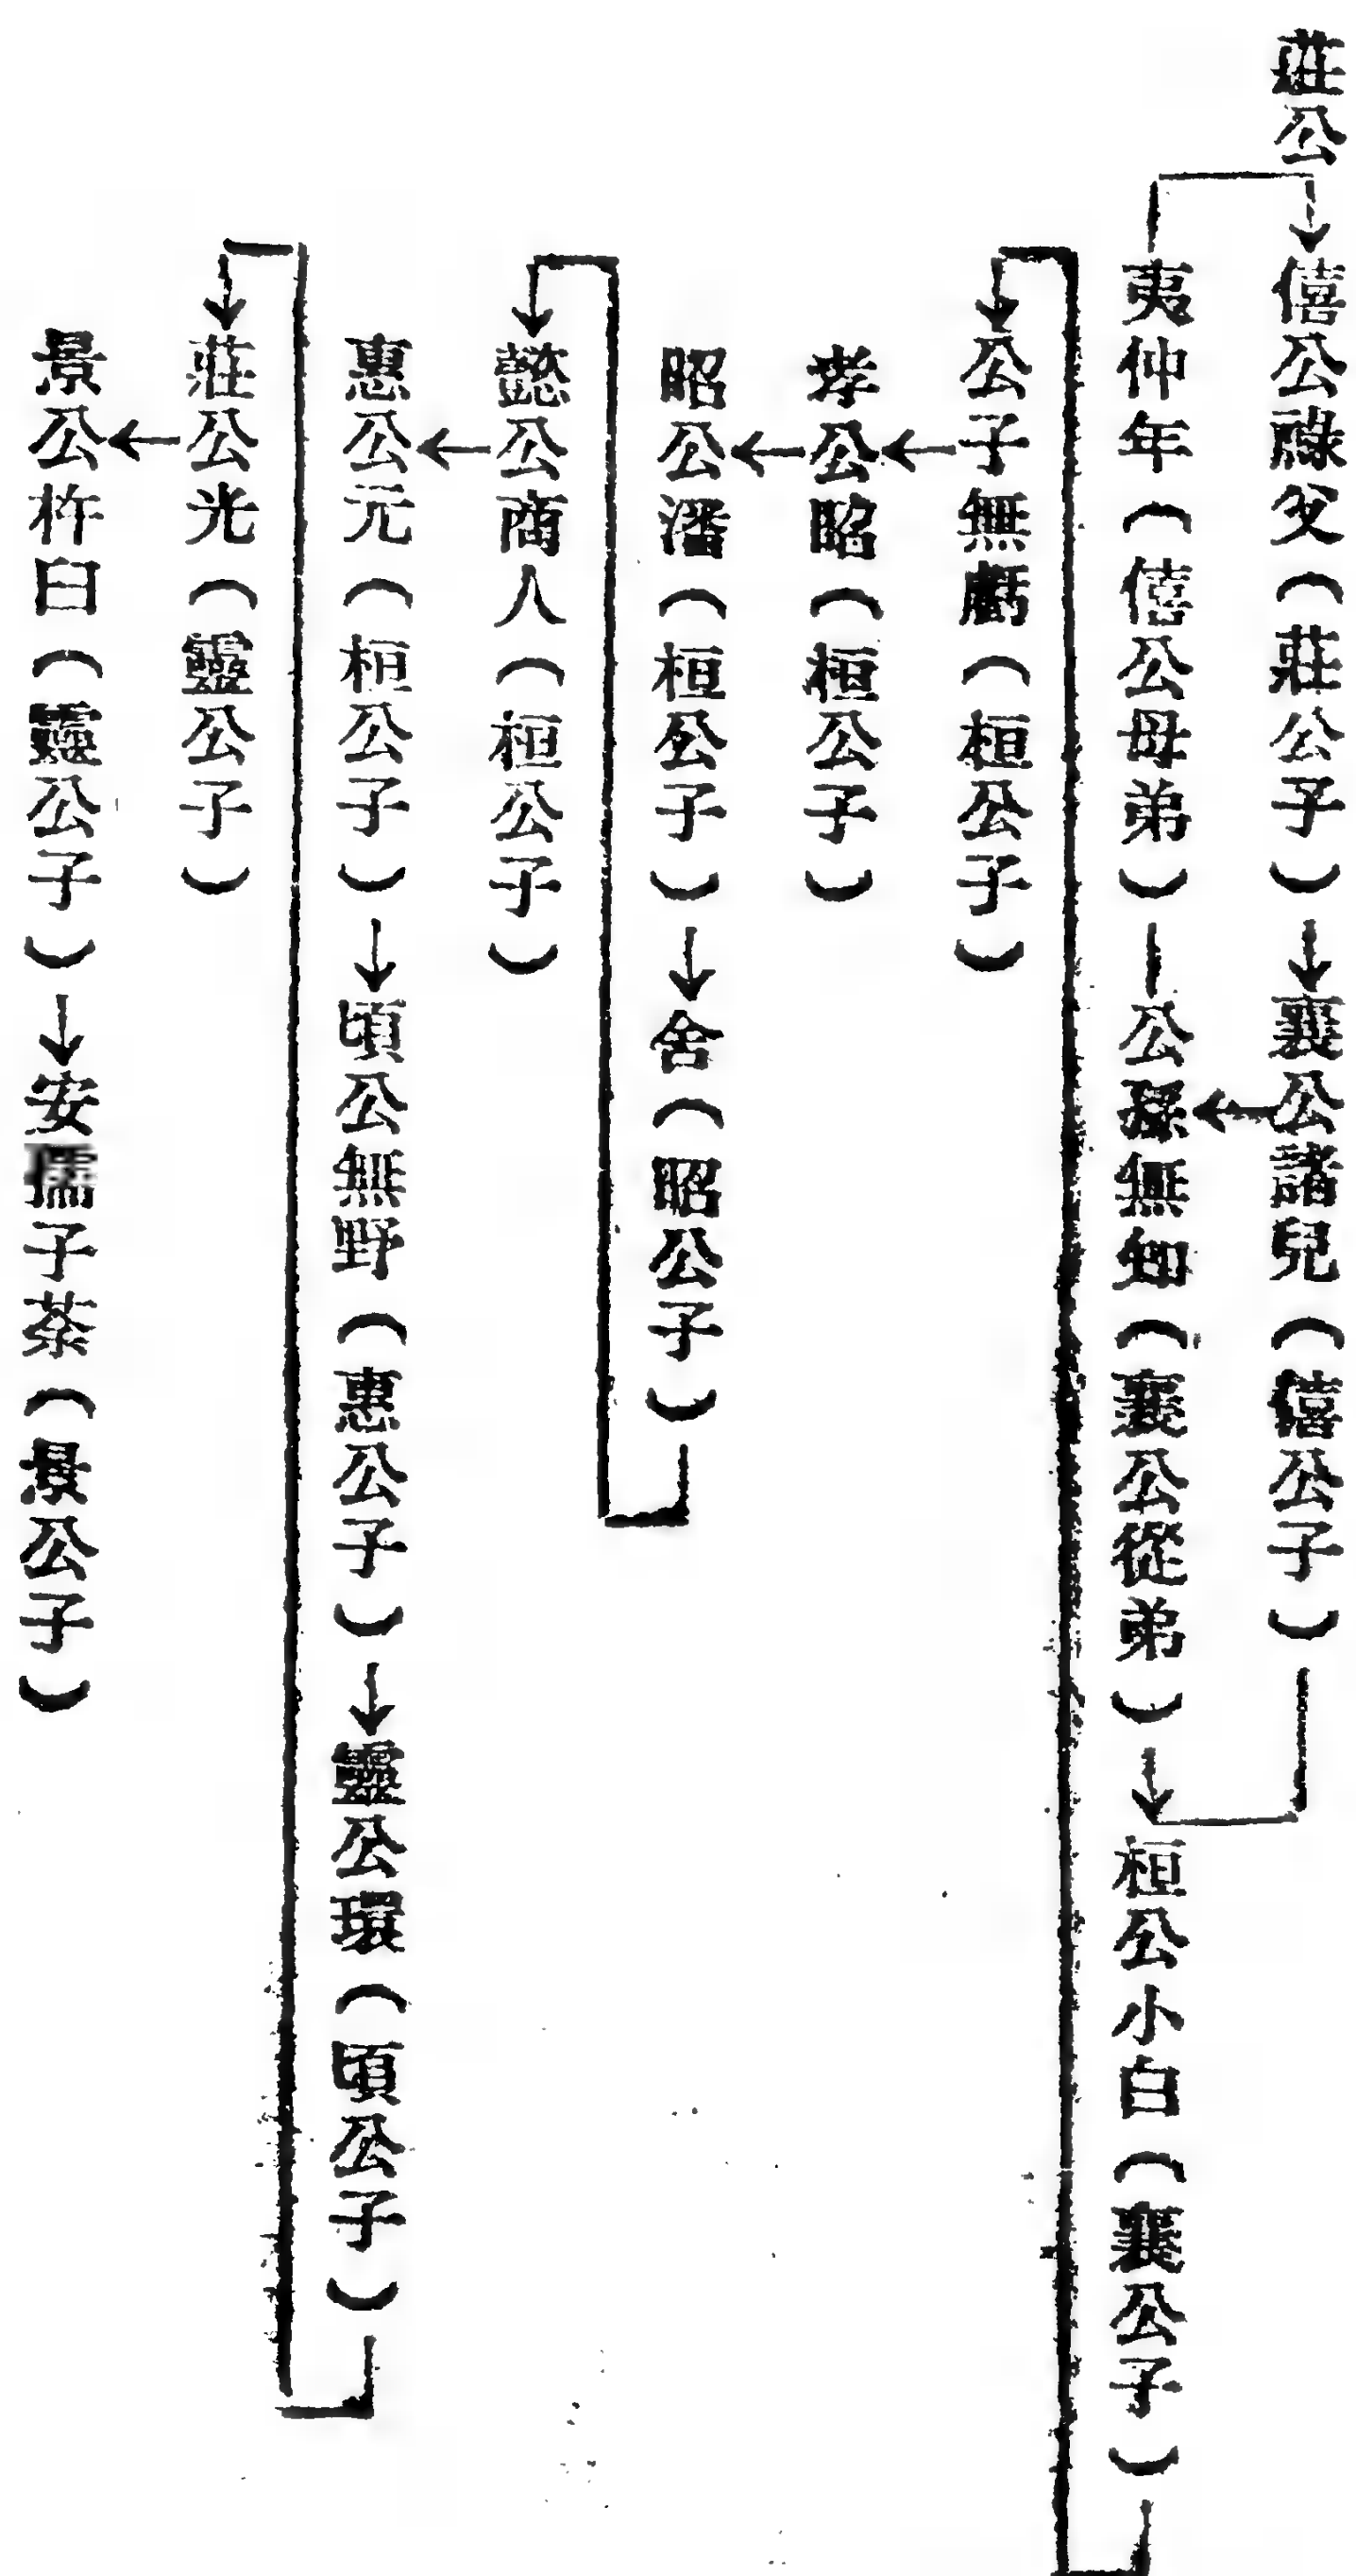 莊公
僖公祿父（莊公子）
襄公諸兒（僖公子）
夷仲年（僖公母弟）
公孫無知（襄公從弟）
桓公小白（襄公子）
公子無虧（桓公子）
孝公昭（桓公子）
昭公潘（桓公子）
舍（昭公子）
懿公商人（桓公子）
惠公元（桓公子）
頃公無野（惠公子）
靈公環（頃公子）
莊公光（靈公子）
景公杵臼（靈公子）
安孺子荼（景公子）